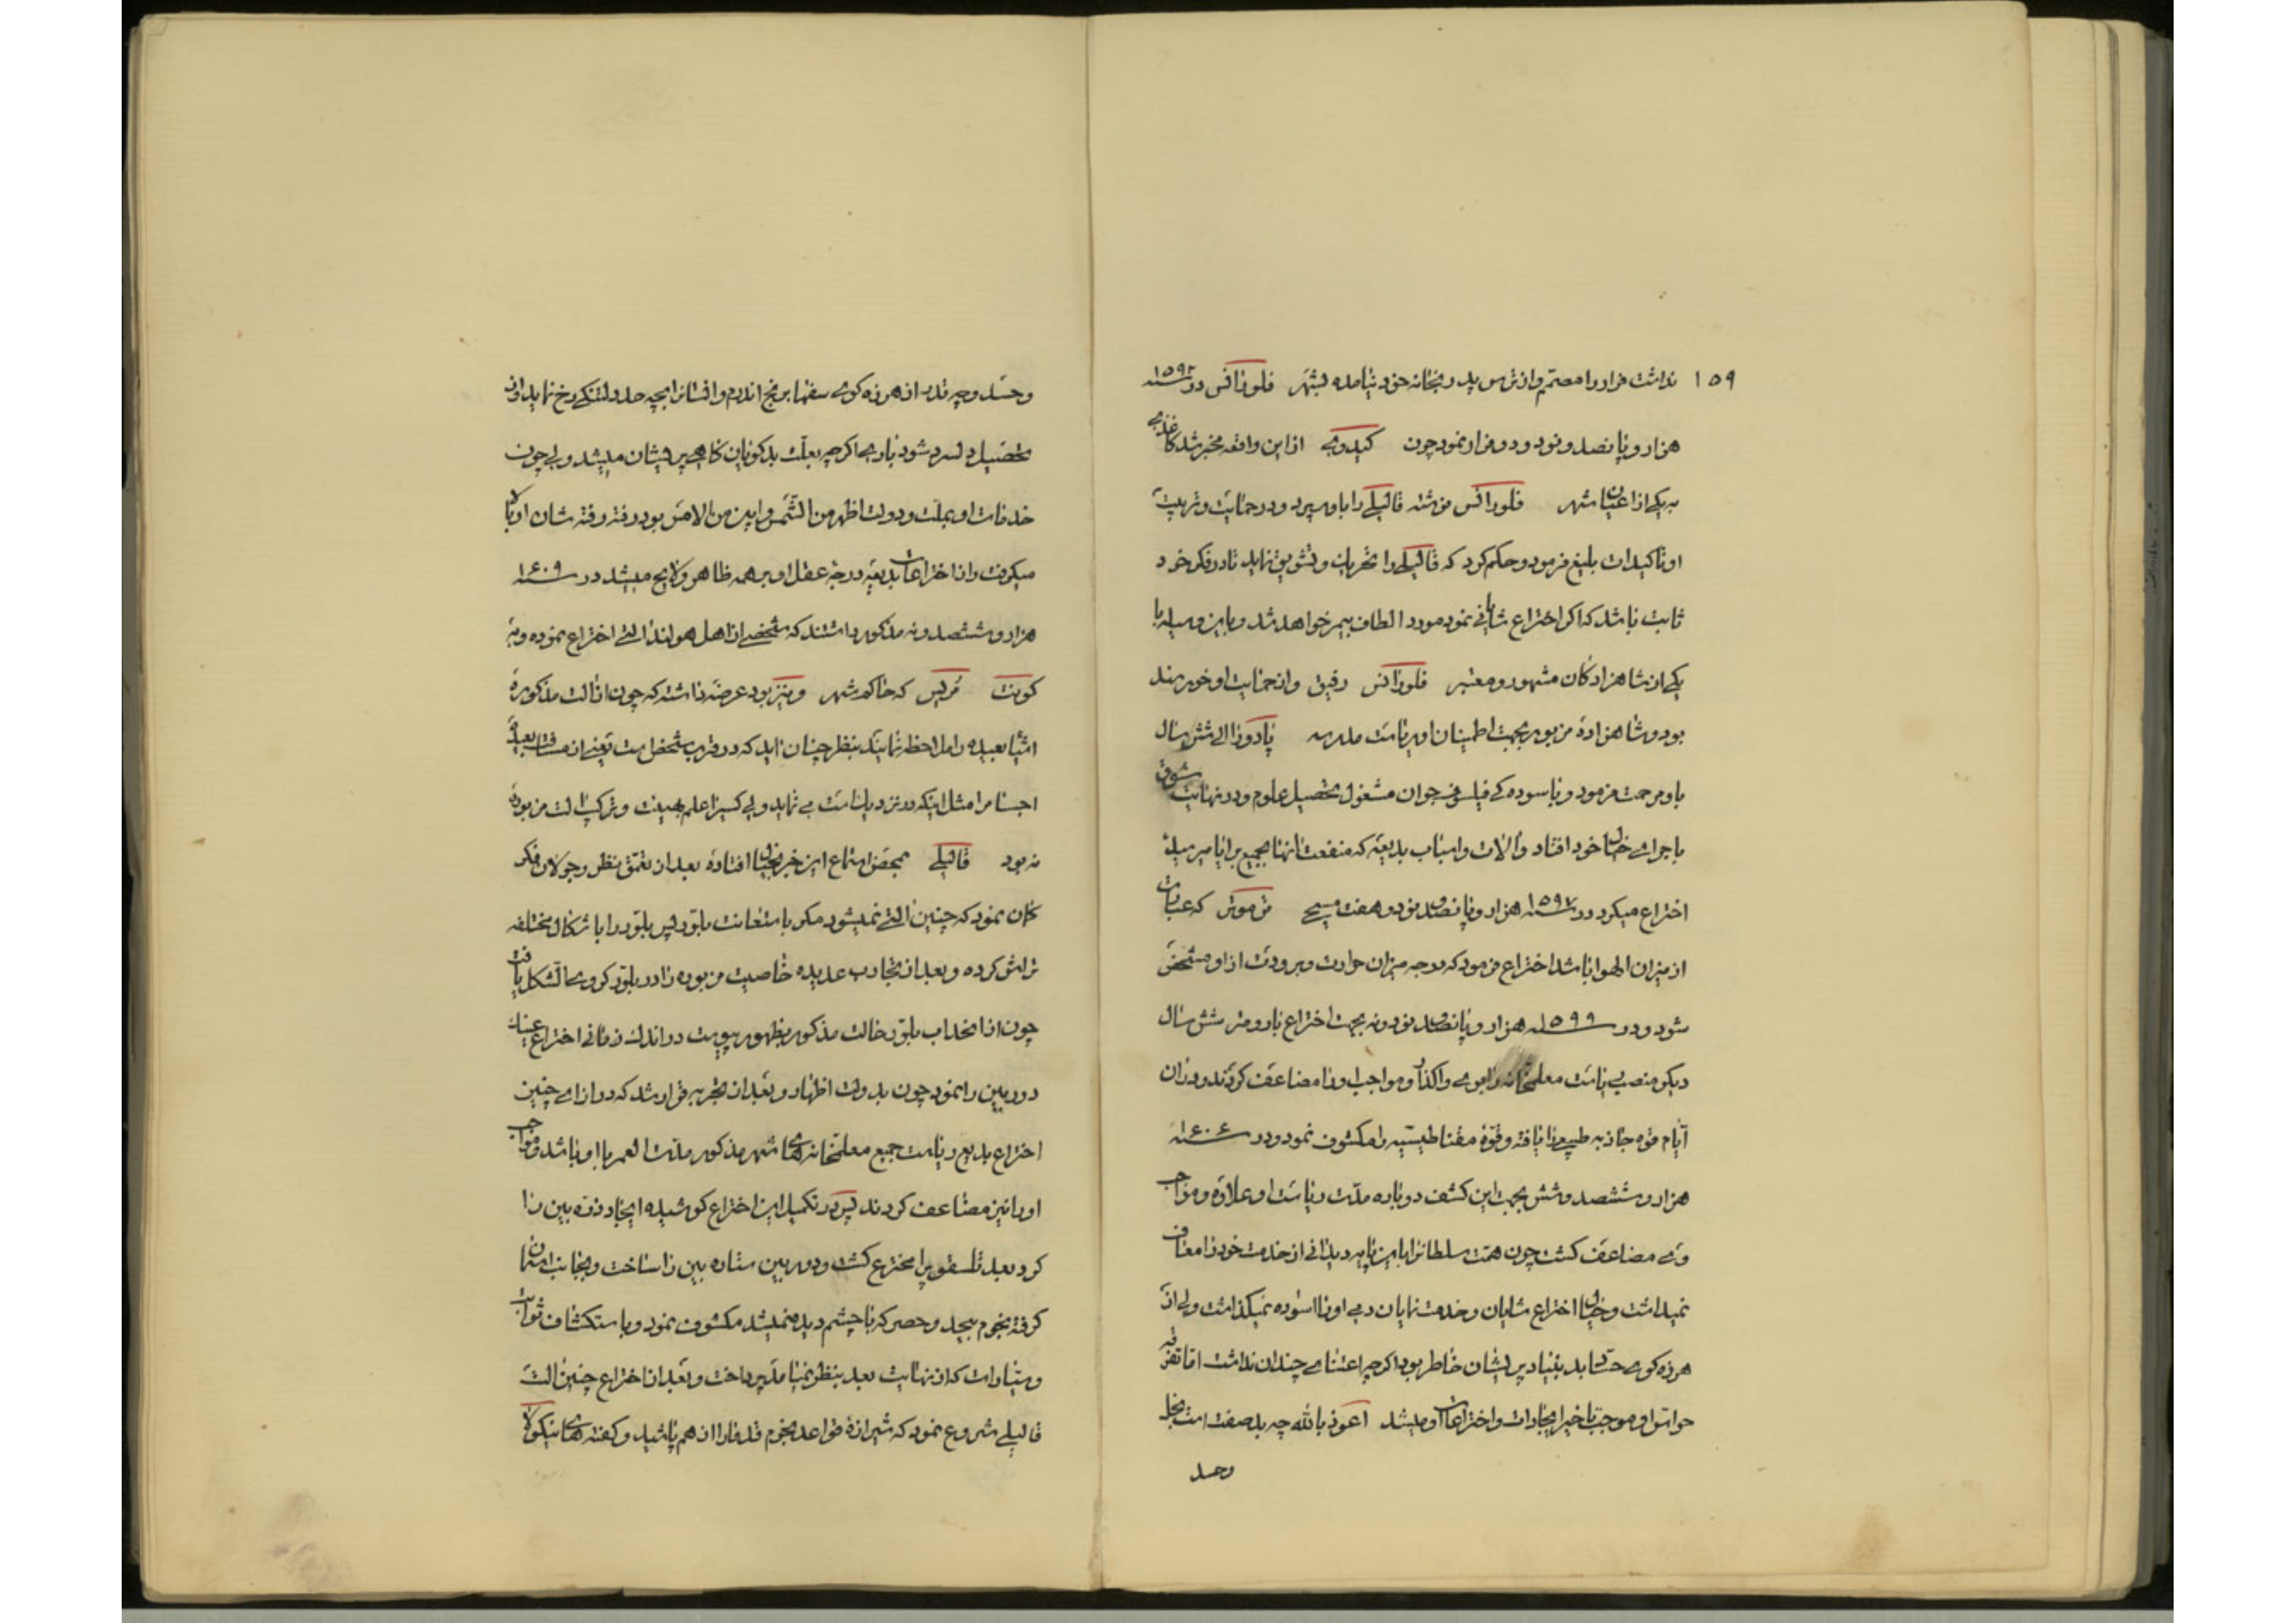 ۱۵۹
نداشت فرار را مصمّم و از ترس پدر بخانه خود نیامده بشهر فلورانس در سنه ۱۵۹۲
هزار و پانصد و نود و دو فرار نمود چون کیدوی از این واقعه مخبر شد کاغذی
به یکی از اعیان شهر فلورانس نوشته قالیلی را باو سپرد و در حمایت و تربیت
او تاکیدات بلیغ فرمود و حکم کرد که قالیلی را تحریان و تشویق نماید تا در فکر خود
ثابت باشد که اکر اختراع شایانی نمود مورد الطاف بیمر خواهد شد و باین وسیله با
یکی از شاهزادکان مشهور و معتبر فلورانس رفیق و از حمایت او خورسند
بود و شاهزاده مزبور بجهت اطمینان او ریاست مدرسه پادوا را الی شش سال
باو مرحمت فرمود و باسوده کی فیلسوف جوان مشغول تحصیل علوم و در نهایت شوق
باجرای خیال خود افتاد و آلات و اسباب بدیعه که منفعت آنها بجمیع برایا میرسید
اختراع میکرد در سنه ۱۵۹۷ هزار و پانصد و نود و هفت مسیحی ترموتر که عبارت
از میزان الهوا باشد اختراع فرمود که درجه میزان حرارت و برودت از او مشخص
شود و در سنه ۱۵۹۹ هزار و پانصد و نود و نه بجهت اختراع بارومتر شش سال
دیکر منصب ریاست معلمخانه را بوی واکذار و مواجب او را مضاعف کردند و در آن
ایام قوه جاذبه طبیعی را یافته و قوّهٔ مقناطیسیه را مکشوف نمود و در سنه ۱۶۰۶
هزار و ششصد و شش بجهت این کشف دوباره مدّت ریاست او علاوه و مواجب
وی مضاعف کشت چون همّت سلطانرا باین پایه دید آنی از خدمت خود را معاف
نمیداشت و خیال اختراع شایان و خدمت نمایان دمی او را اسوده نمیکذاشت ولی از
هرزه کوی حسّاد بد بنیاد پریشان خاطر بود اکرچه اعتنای چندان نداشت امّا تفرقه
حواس او موجب تاخیر ایجادات و اختراعات او میشد اعوذ بالله چه بد صفت است بخل
وحسد
وحسد و چه قدر از هرزه کوی سفها برنج اندرم و انسانرا بچه حد دلتنکی رخ نماید و از
تحصیل دلسرد شود باری اکرچه بعلّت بدکویان کاهی پریشان میشد ولی چون
خدمات او بملت و دولت اظهر من الشّمس و ابین من الامس بود رفته رفته شان او بالا
میکرفت و از اختراعات بدیعه درجه عقل او بر همه ظاهر و لایح میشد در سنه ۱۶۰۹
هزار و ششصد و نه مذکور داشتند که شخصی از اهل هولندا آلتی اختراع نموده و به
کونت مُریس که حاکم شهر وینیز بود عرضه داشته که چون از آلت مذکوره
اشیا بعیده را ملاحظه نمایند بنظر چنان آید که در قرب شخص است یعنی از مسافت بعیده
اجسام را مثل اینکه در نزدیک است می نماید ولی کسیرا علم بهیئت و ترکیب آلت مزبوره
نه بود قالیلی بمحض استماع این خبر بخیال افتاده بعد از تعمّق نظر و جولان فکر
کمان نمود که چنین آلتی نمیشود مکر باستعانت بلّور پس بلّور را باشکال مختلفه
تراش کرده و بعد از تجارب عدیده خاصیت مزبوره را در بلّور کروی الشکل یافت
چون از انحداب بلّور حالت مذکور بظهور پیوست در اندک زمانی اختراع عینک
دوربین را نمود چون بدولت اظهار و بعد از تجربه قرار شد که در ازای چنین
اختراع بدیع ریاست جمیع معلمخانه های شهر مذکور مدّت العمر با او باشد و مواجب
او را نیز مضاعف کردند پس در تکمیل این اختراع کوشیده ایجاد ذرّه بین را
کرد بعد تلسقوپ را مخترع کشت و دوربین ستاره بین را ساخت و بجانب اسمان
کرفته نجوم بیحد و حصر که با چشم دیده نمیشد مکشوف نمود و باستکشاف ثوابت
و سیّارات که از نهایت بعد بنظر نمیامد پرداخت و بعد از اختراع چنین آلت
قالیلی شروع نمود که شیرازهٔ قواعد نجوم قدما را از هم پاشید و کفته های نیکولا